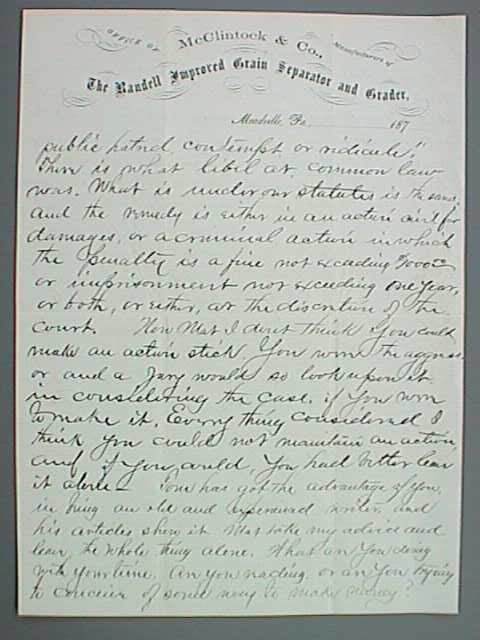 OFFICE OF
McClintock & Co.,
Manufacturers of
The Randell Improved Grain Separator and Grader,
Meadville, Pa. 187
public hatred, contempt or ridicule."
There is what libil at common law
was. What is under our statutes is the same,
and the remedy is either in an action civil for
damages, or a criminal action in which
the penalty is a fine not exceding $1000
or imprisonment not exceeding one year,
or both, or either, at the discretion of the
court. Now Mat I dont think you could
make an action stick. You were the aggress-
or and a Jury would so look upon it
in considering the case, if you were
to make it. Every thing considered I
think you could not maintain an action
and if you could, you had better leave
it alone — Tom has got the advantage of you,
in being an old and experienced writer, and
his articles show it. Mat take my advice and
leave the whole thing alone. What are you doing
with your time. Are you reading, or are you trying
to conceive of some way to make money?